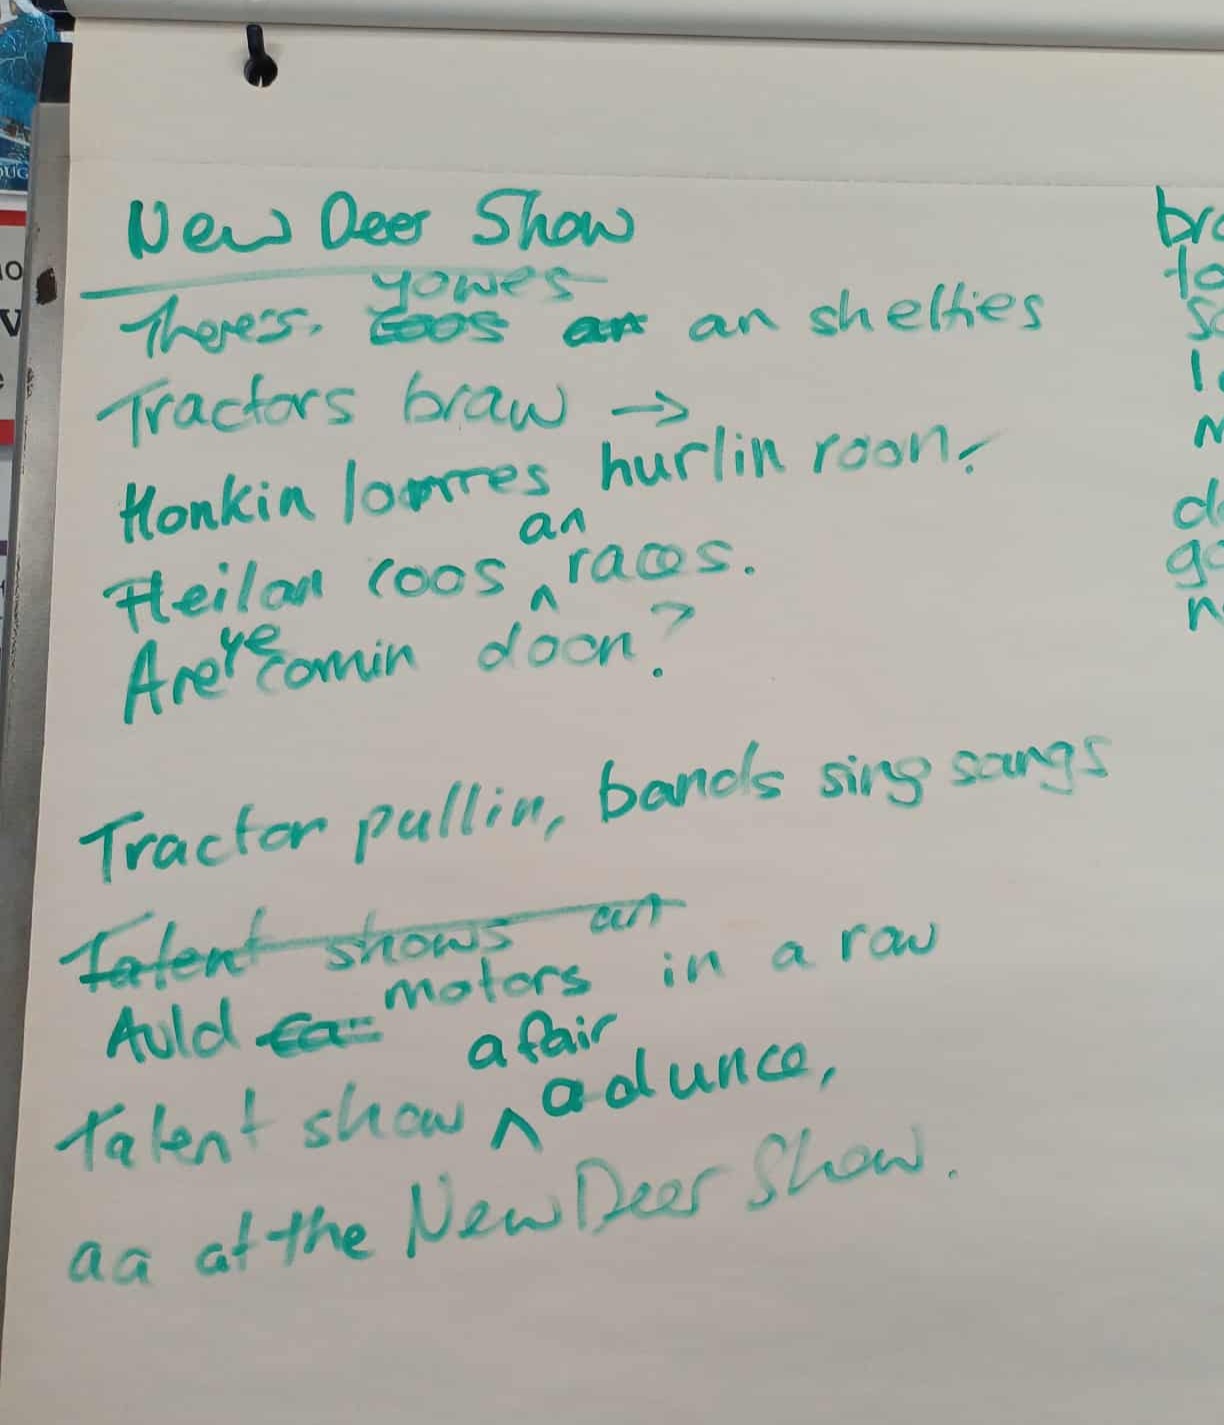 New Deer Show
yowes
There's. coos an an shelties
Tractors braw →
Honkin lorries hurlin roon.
an
Heilan coos ^ races.
Are ye comin doon?
Tractor pullin, bands sing sangs
Talent shows an
Auld ca motors in a raw
a fair
Talent show ^ a dunce,
aa at the New Deer Show.
bra
to
d
go
n